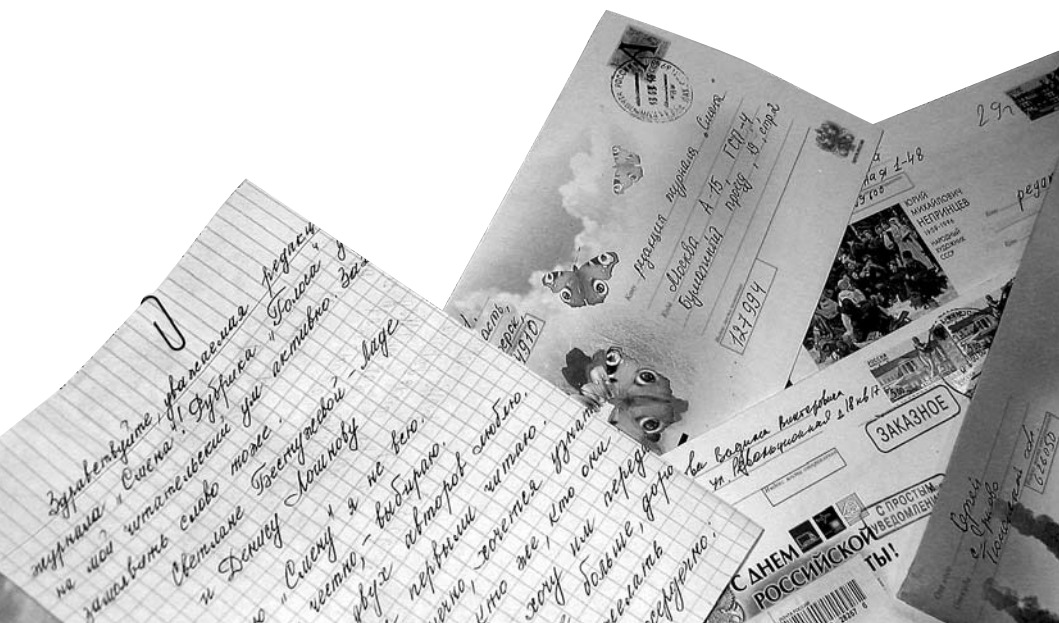 Здравствуйте, уважаемая редакц
журнала „Смена“! Рубрика „Голоса“
на мой читательский ум активно.
зашловать слово тоже.
Светлане Бестужевой-Ладе
и Денису Логинову
„Смену“ я не всю.
честно, – выбираю.
двух авторов люблю.
первыми читаю.
хочется узнать
кто же, кто они
хочу им переда
больше, доро
желать
сердечно!
А
Кому редакция журнала „Смена“
Куда Москва А-15, ГСП-4
Бумажный проезд, 19, стр. 2
127994
29г
1-48
ЮРИЙ
МИХАЙЛОВИЧ
НЕПРИНЦЕВ
1909-1996
НАРОДНЫЙ
ХУДОЖНИК
СССР
Кому редак
ва Вадима Викторовича
ул. Революционная д 18 кв 17
ЗАКАЗНОЕ
С ПРОСТЫМ
УВЕДОМЛЕНИ
С ДНЕМ
РОССИЙСКОЙ
ТЫ!
ПОЧТА РОССИИ
Сергей
626051